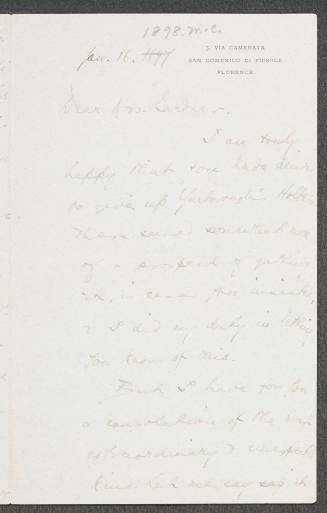 1898. M.C.
Jan. 16. 1897
5, VIA CAMERATA
SAN DOMENICO DI FIESOLE
FLORENCE
Dear Mrs. Gardner -
I am truly
happy that you have decided
to give up Yarborough's Holbein
There seemed somewhat more
of a prospect of getting
it, in case you insisted,
& I did my duty in letting
you know of this.
But I have for you
a consolation of the most
extraordinary & unexpected
kind. Let me say